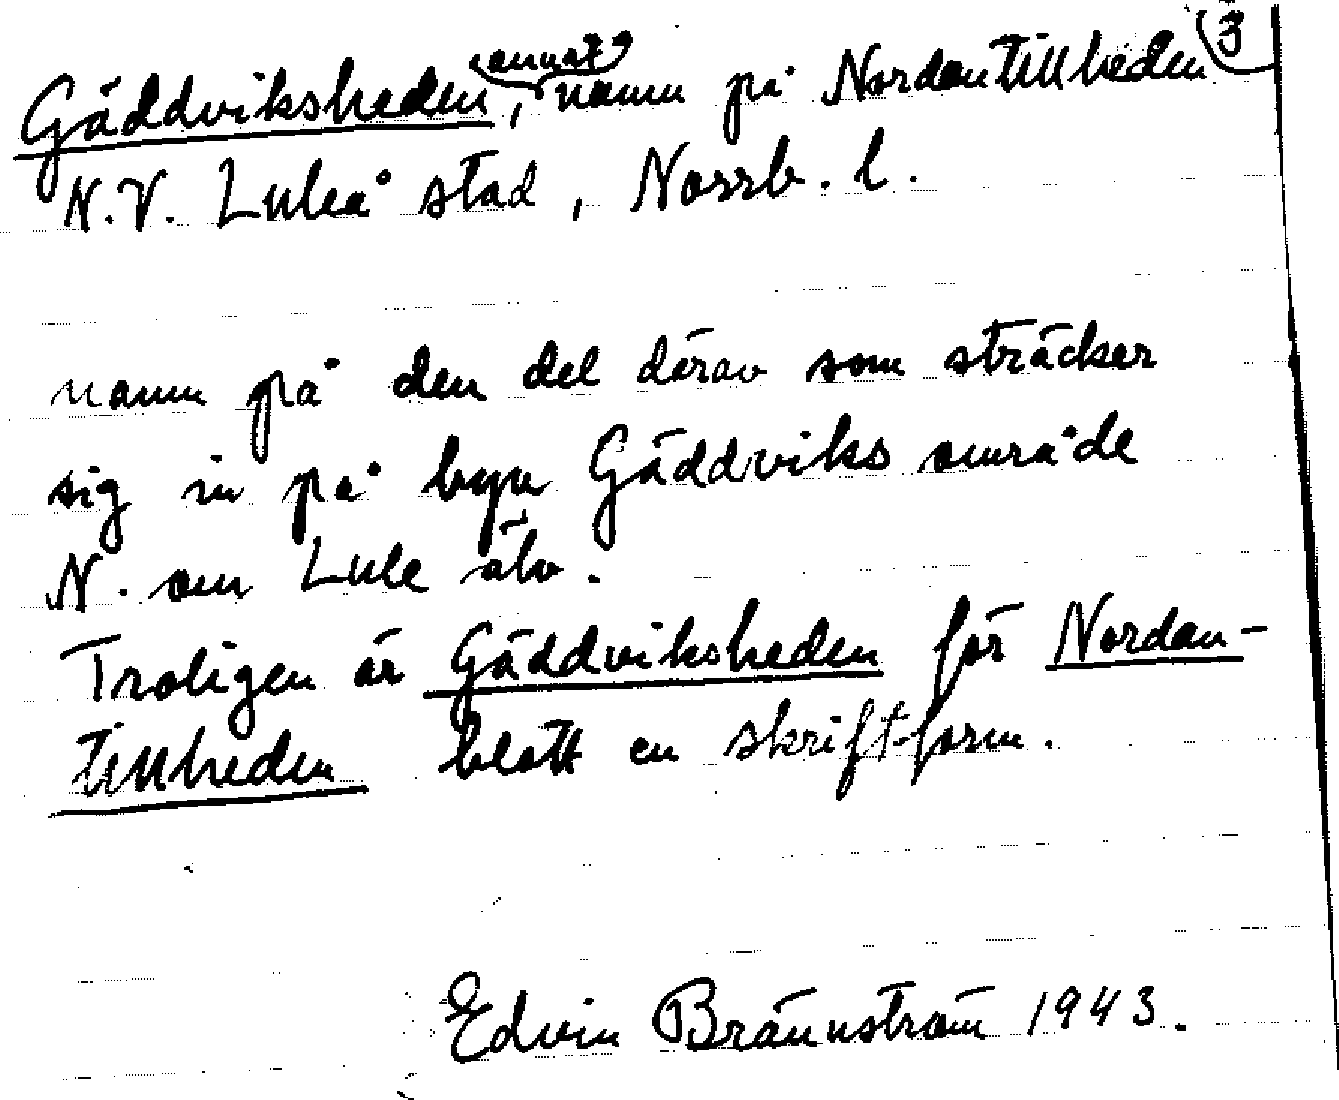 Gäddviksheden, annat namn på Nordantillheden 3
N.V. Luleå stad, Norrb. l.
namn på den del därav som sträcker
sig in på byn Gäddviks område
N. om Lule älv.
Troligen är Gäddviksheden för Nordan-
tillheden blott en skriftform.
Edvin Brännström 1943.